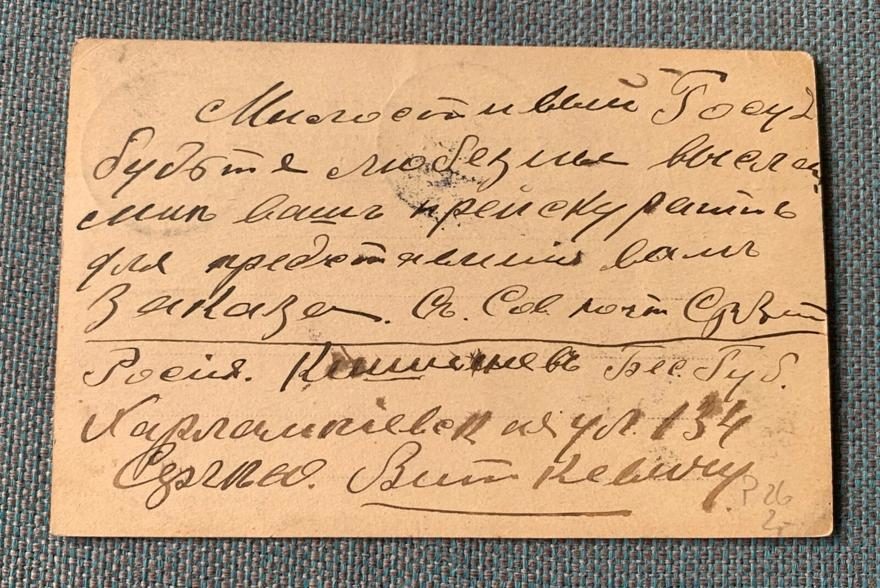 Милостивый Госуд
будьте любезны выслать
мнѣ вашъ прейскурантъ
для представленія вамъ
Заказа. Съ Сов почт
Росия. Кишиневъ Бес. Губ.
Харлампіевск ая ул. 134
Сергѣю. Виткевичу
P 26
2,-